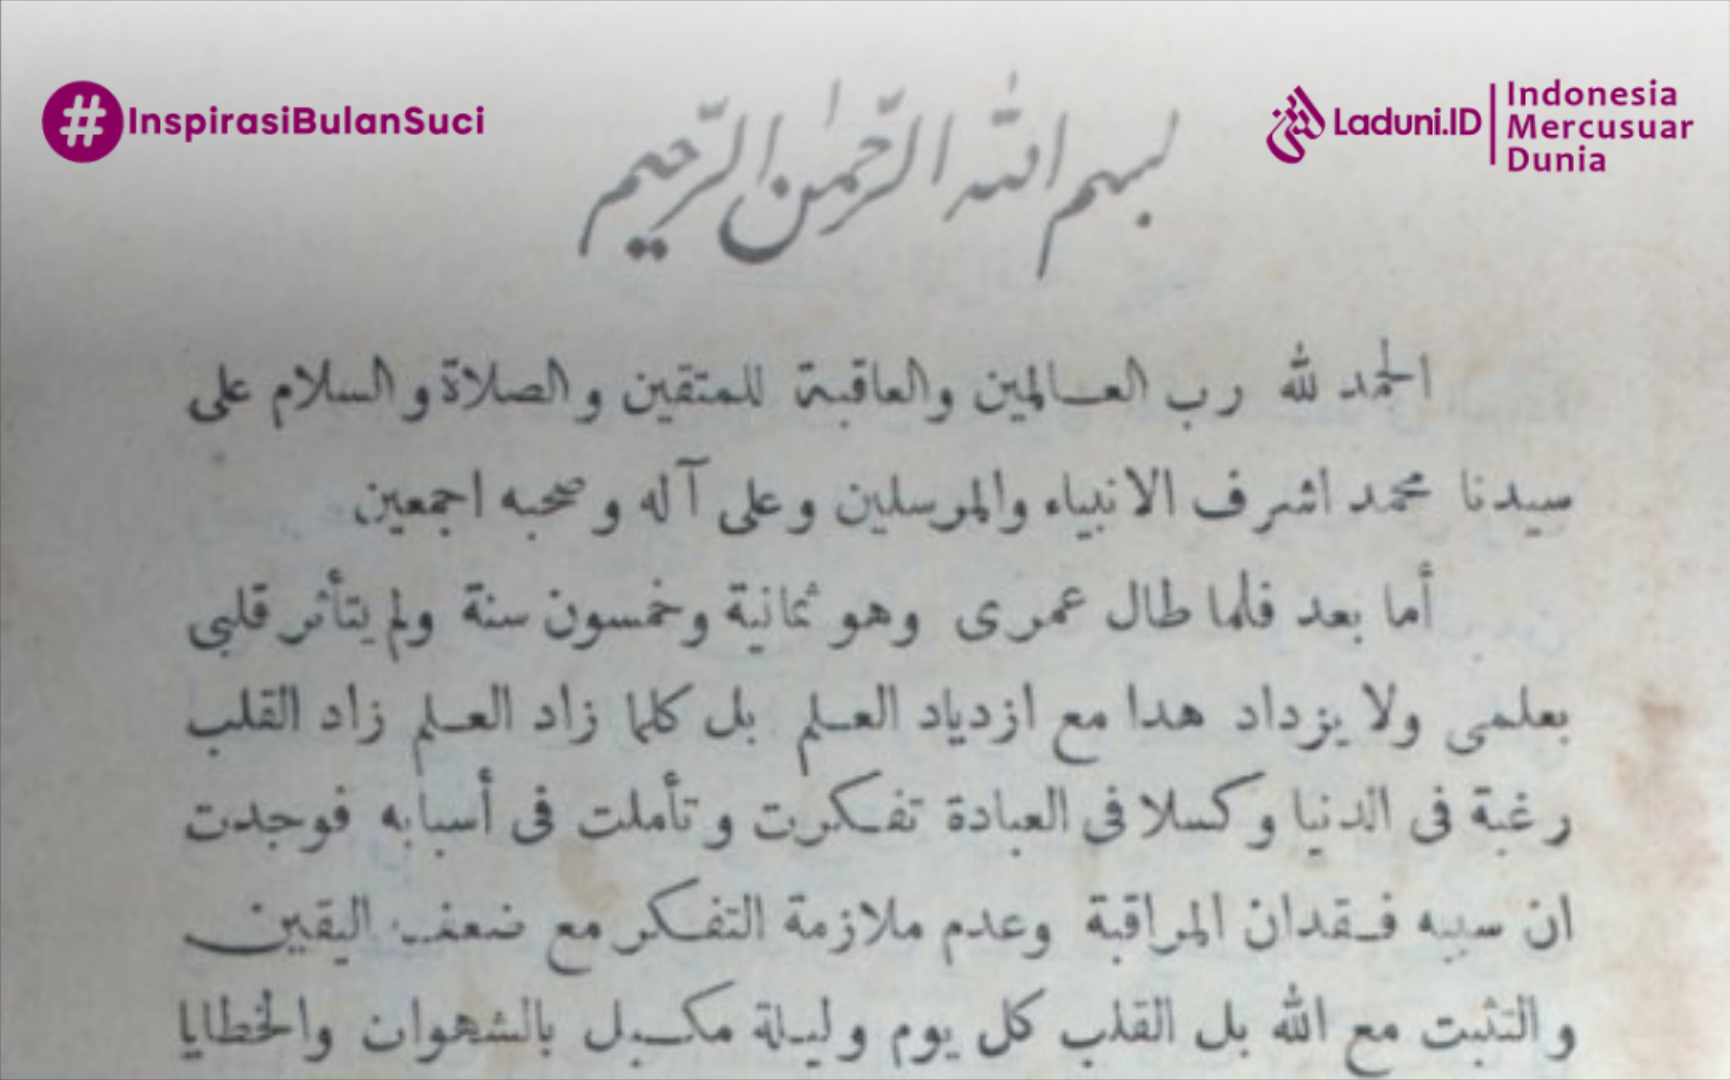 #InspirasiBulanSuci
Laduni.ID
Indonesia
Mercusuar
Dunia
بسم الله الرّحمٰن الرّحيم
الحمد لله رب العالمين والعاقبة للمتقين والصلاة والسلام على
سيدنا محمد اشرف الانبياء والمرسلين وعلى آله وصحبه اجمعين
أما بعد فلما طال عمرى وهو ثمانية وخمسون سنة ولم يتأثر قلبى
بعلمى ولا يزداد هدا مع ازدياد العلم بل كلما زاد العلم زاد القلب
رغبة فى الدنيا وكسلا فى العبادة تفكرت وتأملت فى أسبابه فوجدت
ان سببه فقدان المراقبة وعدم ملازمة التفكر مع ضعف اليقين
والتثبت مع الله بل القلب كل يوم وليلة مكبل بالشهوان والخطايا